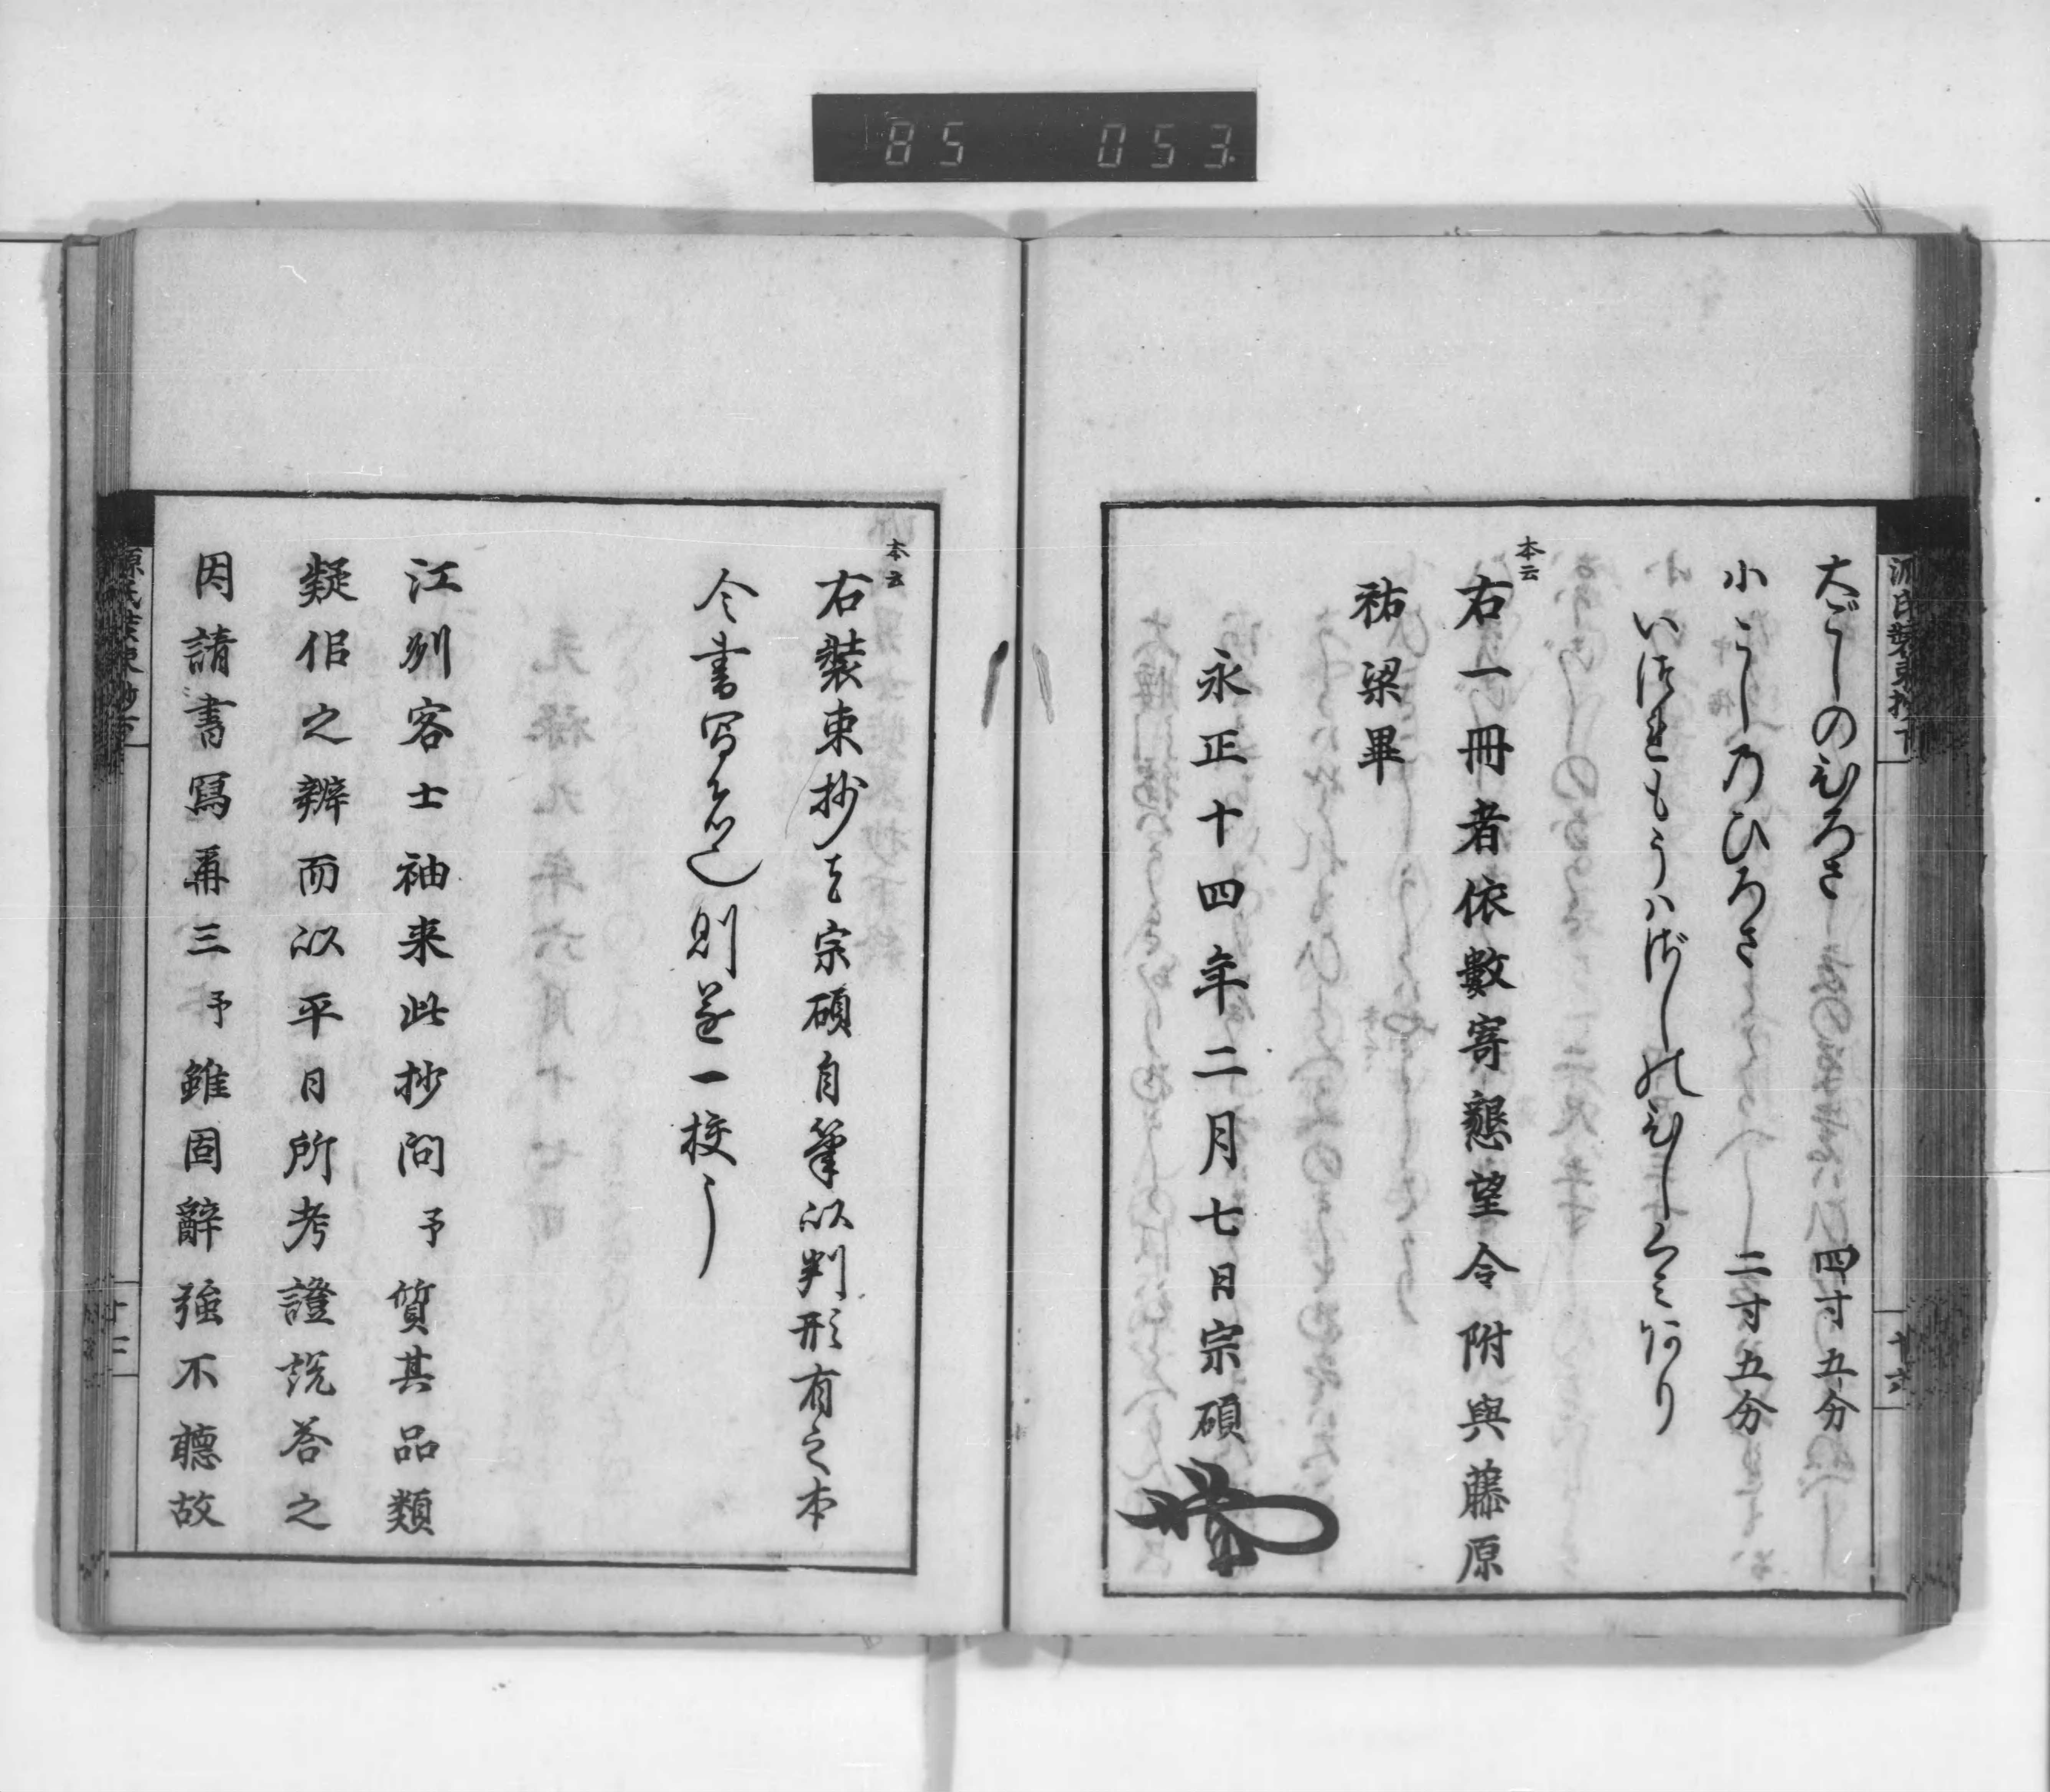 85 053
大ごしのひろさ 四寸五分
小ごしのひろさ 二寸五分
いづれもうハざしのむしくミあり
本云
右一冊者依數寄懇望令附與藤原
祐梁畢
永正十四年二月七日宗碩
源氏装束抄下
十六
本云
右装束抄者宗碩自筆以判形有之本
令書写之 則遂一校了
江列客士袖来此抄問予質其品類
疑佀之辨而以平日所考證説荅之
因請書寫再三予雖固辭強不聴故
源氏装束抄